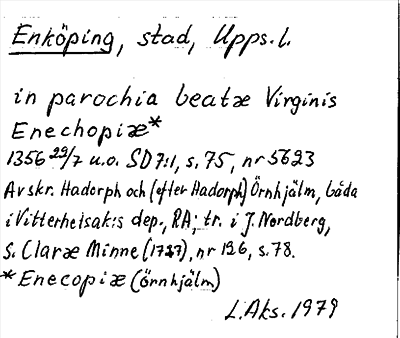 Enköping, stad, Upps.l.
in parochia beatæ Virginis
Enechopiæ*
1356 29/7 u.o. SD 7:1, s. 75, nr 5623
Avskr. Hadorph och (efter Hadorph) Örnhjälm, båda
i Vitterhetsak:s dep., RA; tr. i J. Nordberg,
S. Claræ Minne (1727), nr 126, s. 78.
*Enecopiæ (Örnhjälm)
L.Aks. 1979